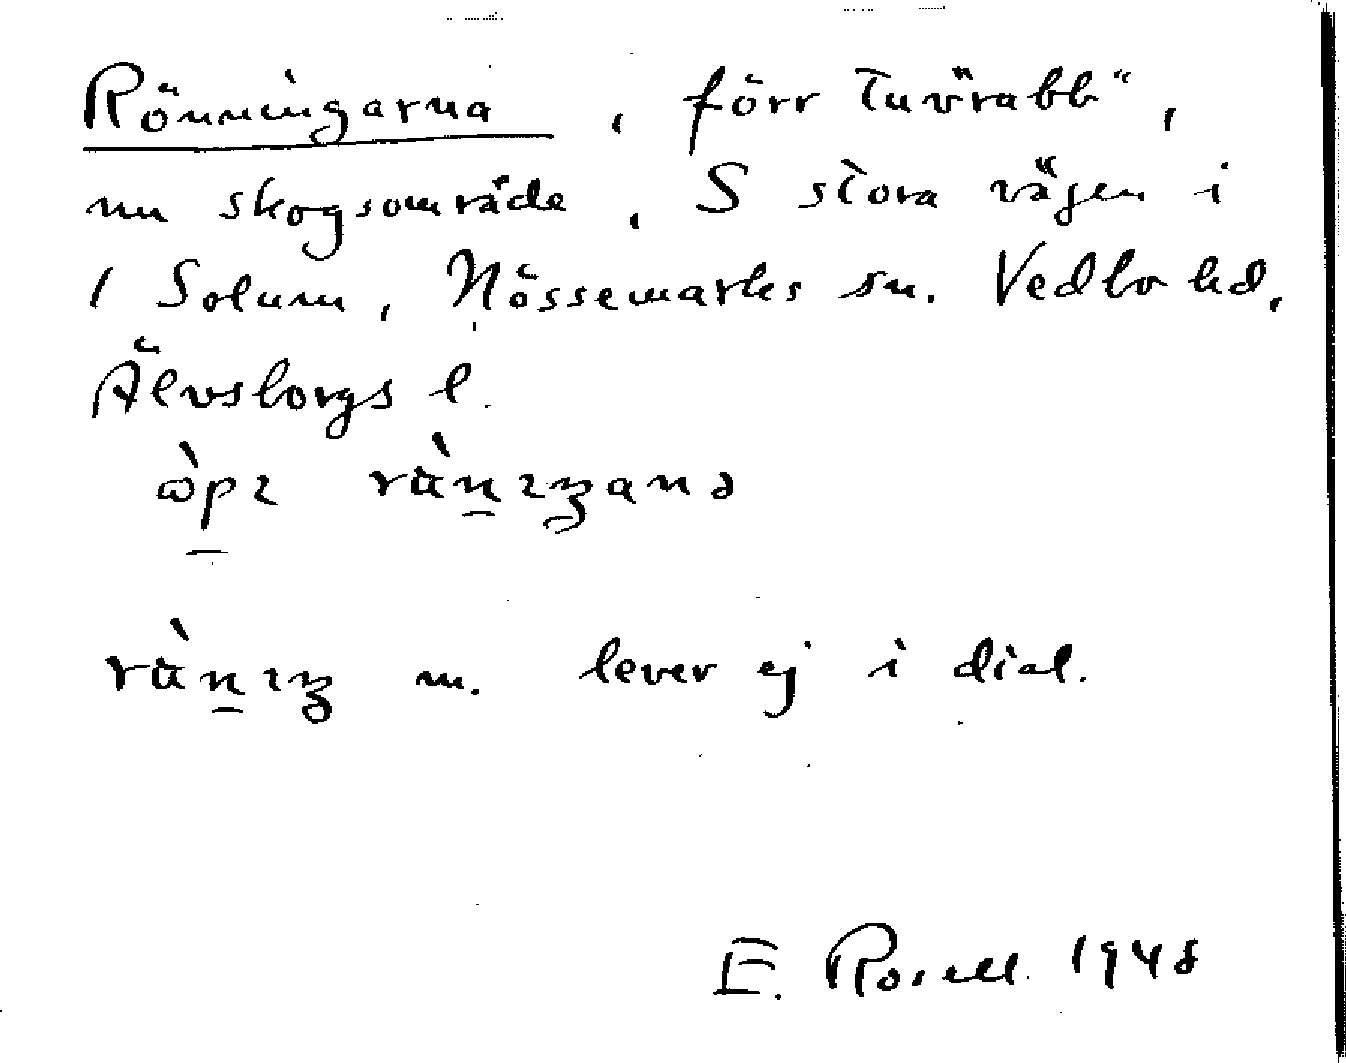 Rönningarna, förr "tuvrabb",
nu skogsområde, S stora vägen i
1 Solum, Nössemarks sn. Vedbo hd,
Älvsborgs l.
m. lever ej i dial.
E. Rosell 1948